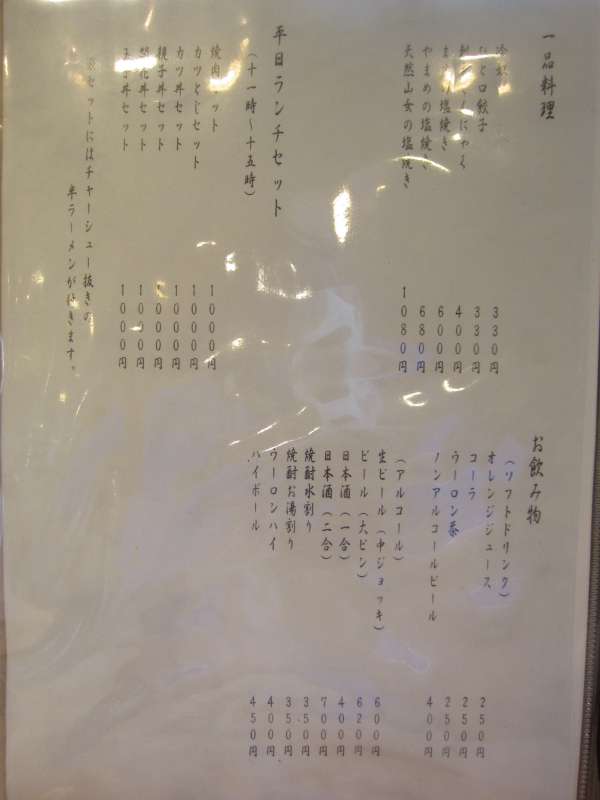 一品料理
330円
ひと口餃子 330円
400円
の塩焼き 600円
やまめの塩焼き 680円
天然山女の塩焼き 1080円
平日ランチセット
(十一時～十五時)
焼肉セット 1000円
カツとじセット 1000円
カツ丼セット 1000円
親子丼セット 1000円
丼セット 1000円
玉子丼セット 1000円
※セットにはチャーシュー抜きの
半ラーメンが付きます。
お飲み物
(ソフトドリンク)
オレンジジュース 250円
コーラ 250円
ウーロン茶 250円
ノンアルコールビール 400円
(アルコール)
生ビール(中ジョッキ) 600円
ビール(大ビン) 620円
日本酒(一合) 400円
日本酒(二合) 700円
焼酎水割り 350円
焼酎お湯割り 350円
ウーロンハイ 400円
ハイボール 450円